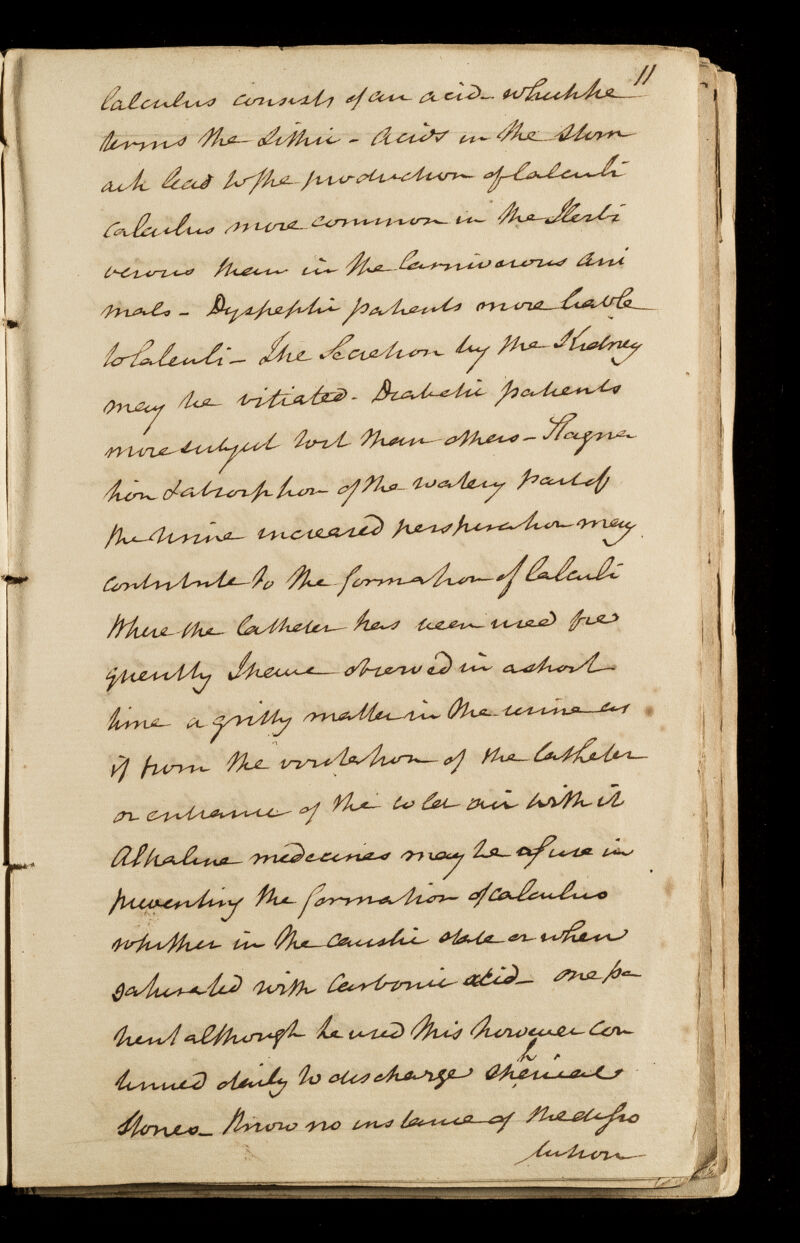 11
Calculus consists of an acid which he
terms the Lithic - Acids in the Stom
ach lead to the production of Calculi
Calculus more common in the Herbi
verous than in the Carniverous Ani
mals - Dyspeptic patients more liable
to Calculi - The Secretion by the Kidney
may be vitiated - Diabetic patients
more subject to it than others - Stagna
tion & absorption of the watery part of
the urine increased perspiration may
contribute to the formation of Calculi
Where the Catheter has been used fre
quently I have observed in a short
time a gritty matter in the urine as
if from the irritation of the Catheter
or entrance of the cold air with it
Alkaline medecines may be of use in
preventing the formation of Calculus
whether in the Caustic state or when
saturated with Carbonic acid - one pa
tient although he used this however con
tinued daily to discharge spherical
Stones - Know no instance of the disso
lution